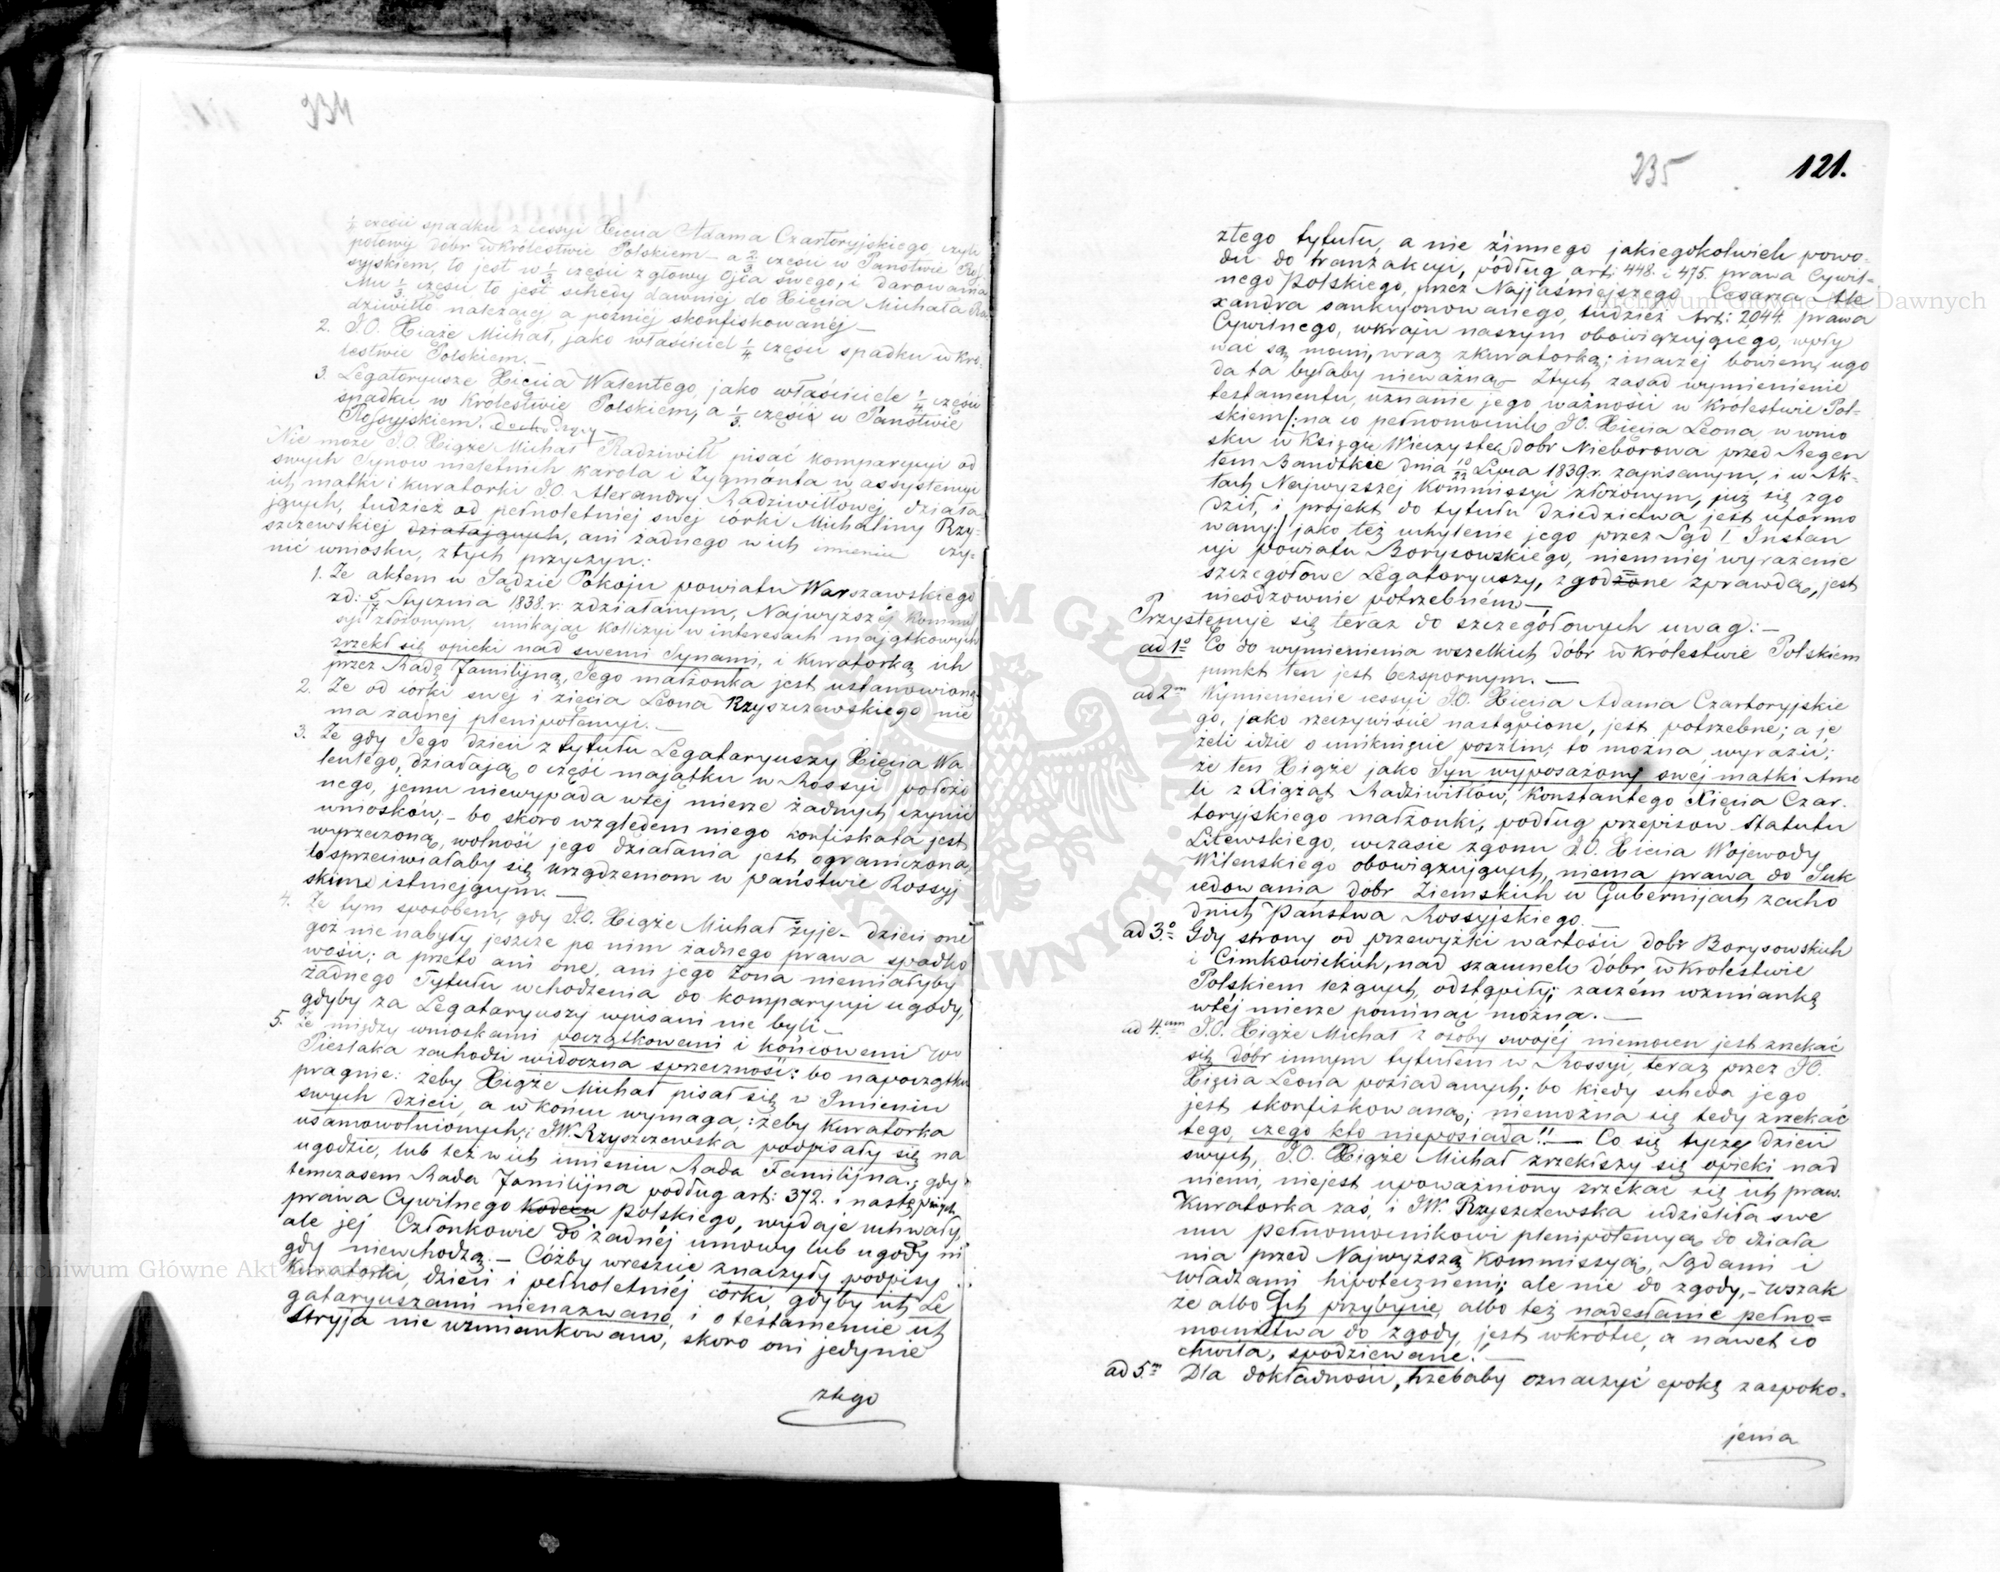 234
½ części spadku z cessyi Xięcia Adama Czartoryjskiego, czyli
połowy dóbr w Królestwie Polskiem – a ⅔ części w Państwie Ros-
syjskiem, to jest w ⅓ części z głowy Ojca swego, i darowania
Mu ⅓ części to jest schedy dawniej do Xięcia Michała Ra-
dziwiłł należącej a później skonfiskowanéj –
2. J.O. Xiąże Michał, jako właściciel ¼ części spadku w Kró-
lestwie Polskiem. –
3. Legatoryusze Xięcia Walentego, jako właściciele ¼ części
spadku w Królestwie Polskiem, a ⅓ części w Państwie
Rossyjskiem.
Nie może J.O. Xiąże Michał Radziwiłł pisać komparycyi od
swych Synow nieletnich Karola i Zygmónta w assystencyi
ich matki i kuratorki JO Alexandry Radziwiłłowej, działa-
jących, tudzież od pełnoletniéj swej córki Michaliny Rzy-
szczewskiej działających, ani żadnego w ich imieniu czy-
nić wniosku, z tych przyczyn:
1. Że aktem w Sądzie Pokoju powiatu Warszawskiego
z d: 5/17 Stycznia 1838. r: zdziałanym, Najwyższéj Kommis-
syi złożonym, unikając kollizyi w interesach majątkowych
zrzekł się opieki nad swemi Synami, i Kuratorką ich
przez Radę Familijną, Jego małżonka jest ustanowioną
2. Że od córki swej i zięcia Leona Rzyszczewskiego nie
ma żadnej plenipotencyi. –
3. Że gdy Jego dzieci z tytułu Legataryuszy Xięcia Wa-
lentego, działają o część majątku w Rossyi położo-
nego, jemu niewypada w téj mierze żadnych czynić
wniosków; – bo skoro względem niego konfiskata jest
wyrzeczoną, wolność jego działania jest ograniczoną,
to sprzeciwiałaby się urządzeniom w państwie Rossyj-
skiem istniejącym. –
4. Że tym sposobem, gdy J.O. Xiąże Michał żyje – dzieci one-
goż nie nabyły jeszcze po nim żadnego prawa spadko-
wości; a przeto ani one, ani jego żona niemiałyby
żadnego Tytułu wchodzenia do komparycyi ugody,
gdyby za Legataryuszy wpisani nie byli –
5. Że między wnioskami początkowemi i końcowemi W°
Pieślaka zachodzi widoczna sprzeczność: bo napoczątku
pragnie: żeby Xiąże Michał pisał się w Imieniu
swych dzieci, a w końcu wymaga,: żeby Kuratorka
usamowolnionych, i JW. Rzyszczewska podpisały się na
ugodzie, lub też w ich imieniu Rada Familijna.; gdy
temczasem Rada Familijna podług art: 372. i następnych
prawa Cywilnego Kodexu polskiego, wydaje uchwały,
ale jej Członkowie do żadnéj umowy lub ugody ni-
gdy niewchodzą. – Cóżby wreszcie znaczyły podpisy
Kuratorki, dzieci i pełnoletniéj córki, gdyby ich Le-
gataryuszami nienazwano, i o testamencie ich
Stryja nie wzmiankowano, skoro oni jedynie
z tego
235
121.
z tego tytułu, a nie z innego jakiegokolwiek powo-
du do tranzakcyi, podług art: 448. i 475. prawa Cywil-
nego Polskiego, przez Najjaśniejszego Cesarza Ale-
xandra sankcyonowanego, tudzież Art: 2,044. prawa
Cywilnego, w kraju naszym obowiązującego, wpły-
wać są mocni, wraz z kuratorką; inaczéj bowiem, ugo-
da ta byłaby nieważną – Z tych zasad wymienienie
testamentu, uznanie jego ważności w Królestwie Pol-
skiem /: na co pełnomocnik JO. Xięcia Leona, w wnio-
sku w Księgę Wieczystą dobr Nieborowa przed Regen-
tem Bandtkie dnia 10/22 Lipca 1839. r. zapisanym, i w Ak-
tach Najwyższéj Kommissyi złożonym, już się zgo-
dził, i projekt do tytułu dziedzictwa jest uformo-
wany:/ jako też uchylenie jego przez Sąd I. Instan-
cyi powiatu Borysowskiego, niemniéj wyrażenie
szczegółowe Legatoryuszy, zgodne z prawdą, jest
nieodzownie potrzebném –
Przystępuje się teraz do szczegółowych uwag: –
ad 1° Co do wymienienia wszelkich dóbr w Królestwie Polskiem
punkt ten jest bezspornym. –
ad 2m Wymienienie cessyi JO. Xięcia Adama Czartoryjskie-
go, jako rzeczywiście nastąpione, jest potrzebne; a je-
żeli idzie o uniknięcie poszlin; to można wyrazić;
że ten Xiąże jako Syn wyposażonéj swéj matki Ane-
li z Xiążąt Radziwiłłów, Konstantego Xięcia Czar-
toryjskiego małżonki, podług przepisów Statutu
Litewskiego, w czasie zgonu JO. Xięcia Wojewody
Wileńskiego obowiązujących, niema prawa do Suk-
cedowania dobr Ziemskich w Gubernijach zacho-
dnich Państwa Rossyjskiego –
ad 3° Gdy strony od przewyżki wartości dobr Borysowskich
i Cimkowickich, nad szacunek dóbr w Królestwie
Polskiem leżących, odstąpiły; zaczém wzmiankę
w téj mierze pominąć można. –
ad 4um J.O. Xiąże Michał z osoby swojéj niemocen jest zrzekać
się dobr innym tytułem w Rossyi, teraz przez JO.
Xięcia Leona posiadanych; bo kiedy scheda jego
jest skonfiskowaną; niemożna się tedy zrzekać
tego, czego kto nieposiada!! – Co się tyczę dzieci
swych, J.O. Xiąże Michał zrzekłszy się opieki nad
niemi, niejest upoważniony zrzekać się ich praw.
Kuratorka zaś, i JW. Rzyszczewska udzieliła swe-
mu pełnomocnikowi plenipotencyą do działa-
nia przed Najwyższą Kommissyą, Sądami i
Władzami hipotecznemi; ale nie do zgody, – wszak-
że albo Ich przybycie, albo też nadesłanie pełno-
mocnictwa do zgody, jest wkrótce, a nawet co
chwila, spodziewane. –
ad 5m Dla dokładności, trzebaby oznaczyć epokę zaspoko-
jenia
Archiwum Główne Akt Dawnych